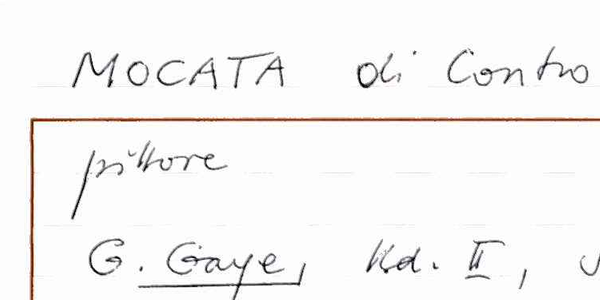 MOCATA di Contro
pittore
G. Gaye, Kd. II,